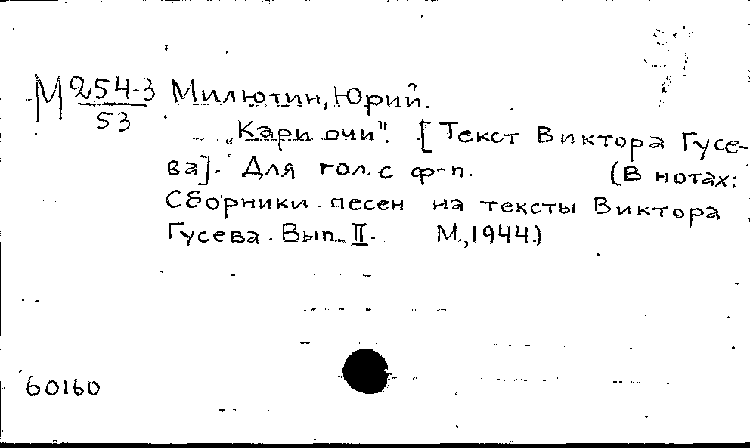 М 254-3 Милютин, Юрий.
53
„Кари очи". [Текст Виктора Гусе-
ва]. Для гол. с ф-п. (В нотах:
Сборники песен на тексты Виктора
Гусева. Вып. II. М, 1944.)
60160